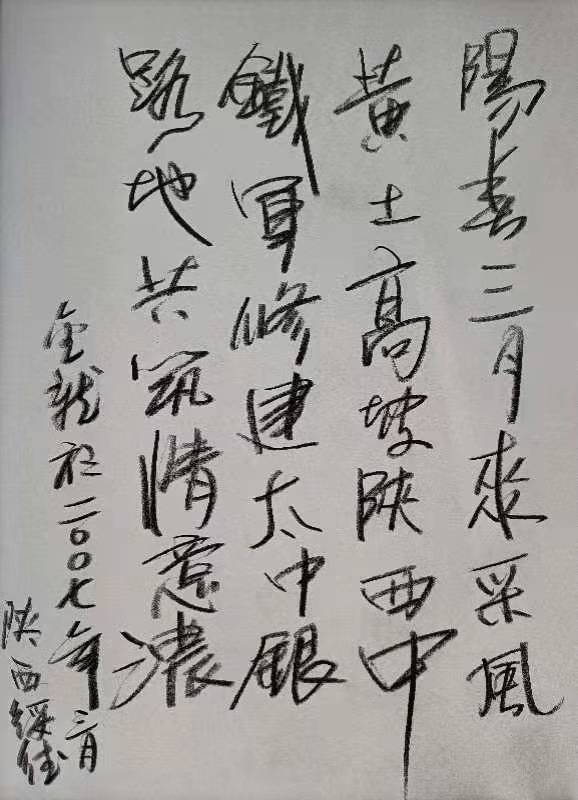 陽春三月來采风
黃土高坡陝西中
鐵軍修建太中銀
路地共筑情意濃
金龍於二00七年三月
陕西绥德